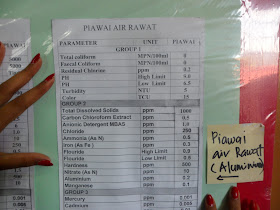 PIAWAI AIR RAWAT
PARAMETER UNIT PIAWAI
GROUP 1
Total coliform MPN/100ml 0
Faecal Coliform MPN/100ml 0
Residual Chlorine ppm 0.2
PH High Level 9.0
PH Low Level 6.5
Turbidity NTU 5
Color TCU 15
GROUP 2
Total Dissolved Solids ppm 1000
Carbon Chloroform Extract ppm 0.5
Anionic Detergent MBAS ppm 1.0
Chloride ppm 250
Ammonia (As N) ppm 0.5
Iron (As Fe) ppm 0.3
Flouride High Level 0.9
Flourida Low Level
Hardness ppm 500
Nitrate (As N) ppm 10
Aluminium ppm 0.2
Manganese ppm 0.1
GROUP 3
Mercury ppm 0.001
Cadmium ppm
Piawai
air Rawat
(Aluminium)